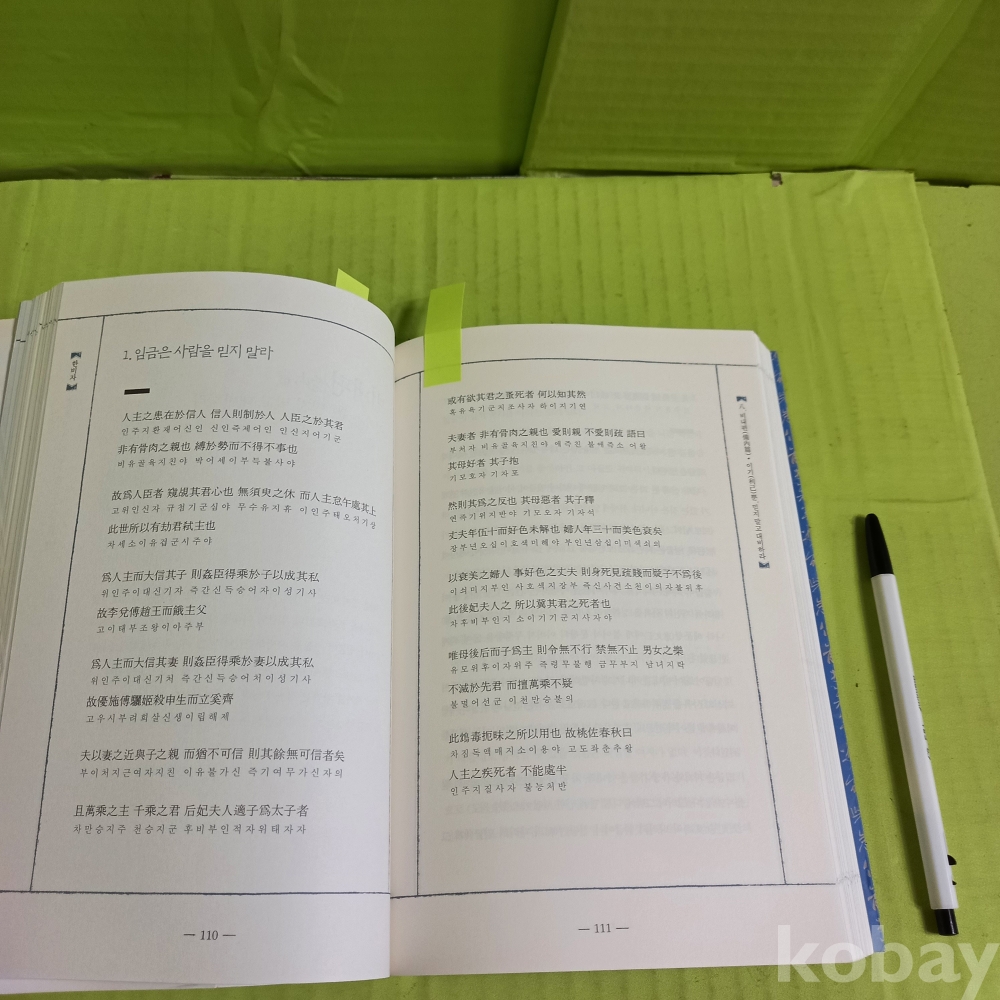 한비자
1. 임금은 사람을 믿지 말라
人主之患在於信人 信人則制於人 人臣之於其君
인주지환재어신인 신인즉제어인 인신지어기군
非有骨肉之親也 縛於勢而不得不事也
비유골육지친야 박어세이부득불사야
故爲人臣者 窺覘其君心也 無須臾之休 而人主怠午處其上
고위인신자 규첨기군심야 무수유지휴 이인주태오처기상
此世所以有劫君弑主也
차세소이유겁군시주야
爲人主而大信其子 則姦臣得乘於子以成其私
위인주이대신기자 즉간신득승어자이성기사
故李兌傅趙王而餓主父
고이태부조왕이아주부
爲人主而大信其妻 則姦臣得乘於妻以成其私
위인주이대신기처 즉간신득승어처이성기사
故優施傅驪姬殺申生而立奚齊
고우시부려희살신생이립해제
夫以妻之近與子之親 而猶不可信 則其餘無可信者矣
부이처지근여자지친 이유불가신 즉기여무가신자의
且萬乘之主 千乘之君 后妃夫人適子爲太子者
차만승지주 천승지군 후비부인적자위태자자
— 110 —
或有欲其君之蚤死者 何以知其然
혹유욕기군지조사자 하이지기연
夫妻者 非有骨肉之親也 愛則親 不愛則疏 語曰
부처자 비유골육지친야 애즉친 불애즉소 어왈
其母好者 其子抱
기모호자 기자포
然則其爲之反也 其母惡者 其子釋
연즉기위지반야 기모오자 기자석
丈夫年五十而好色未解也 婦人年三十而美色衰矣
장부년오십이호색미해야 부인년삼십이미색쇠의
以衰美之婦人 事好色之丈夫 則身死見疏賤而疑子不爲後
이쇠미지부인 사호색지장부 즉신사견소천이의자불위후
此後妃夫人之 所以冀其君之死者也
차후비부인지 소이기기군지사자야
唯母後后而子爲主 則令無不行 禁無不止 男女之樂
유모위후이자위주 즉령무불행 금무부지 남녀지락
不減於先君 而擅萬乘不疑
불멸어선군 이천만승불의
此鴆毒扼昧之所以用也 故桃佐春秋曰
차짐독액매지소이용야 고도좌춘추왈
人主之疾死者 不能處半
인주지질사자 불능처반
— 111 —
kobay